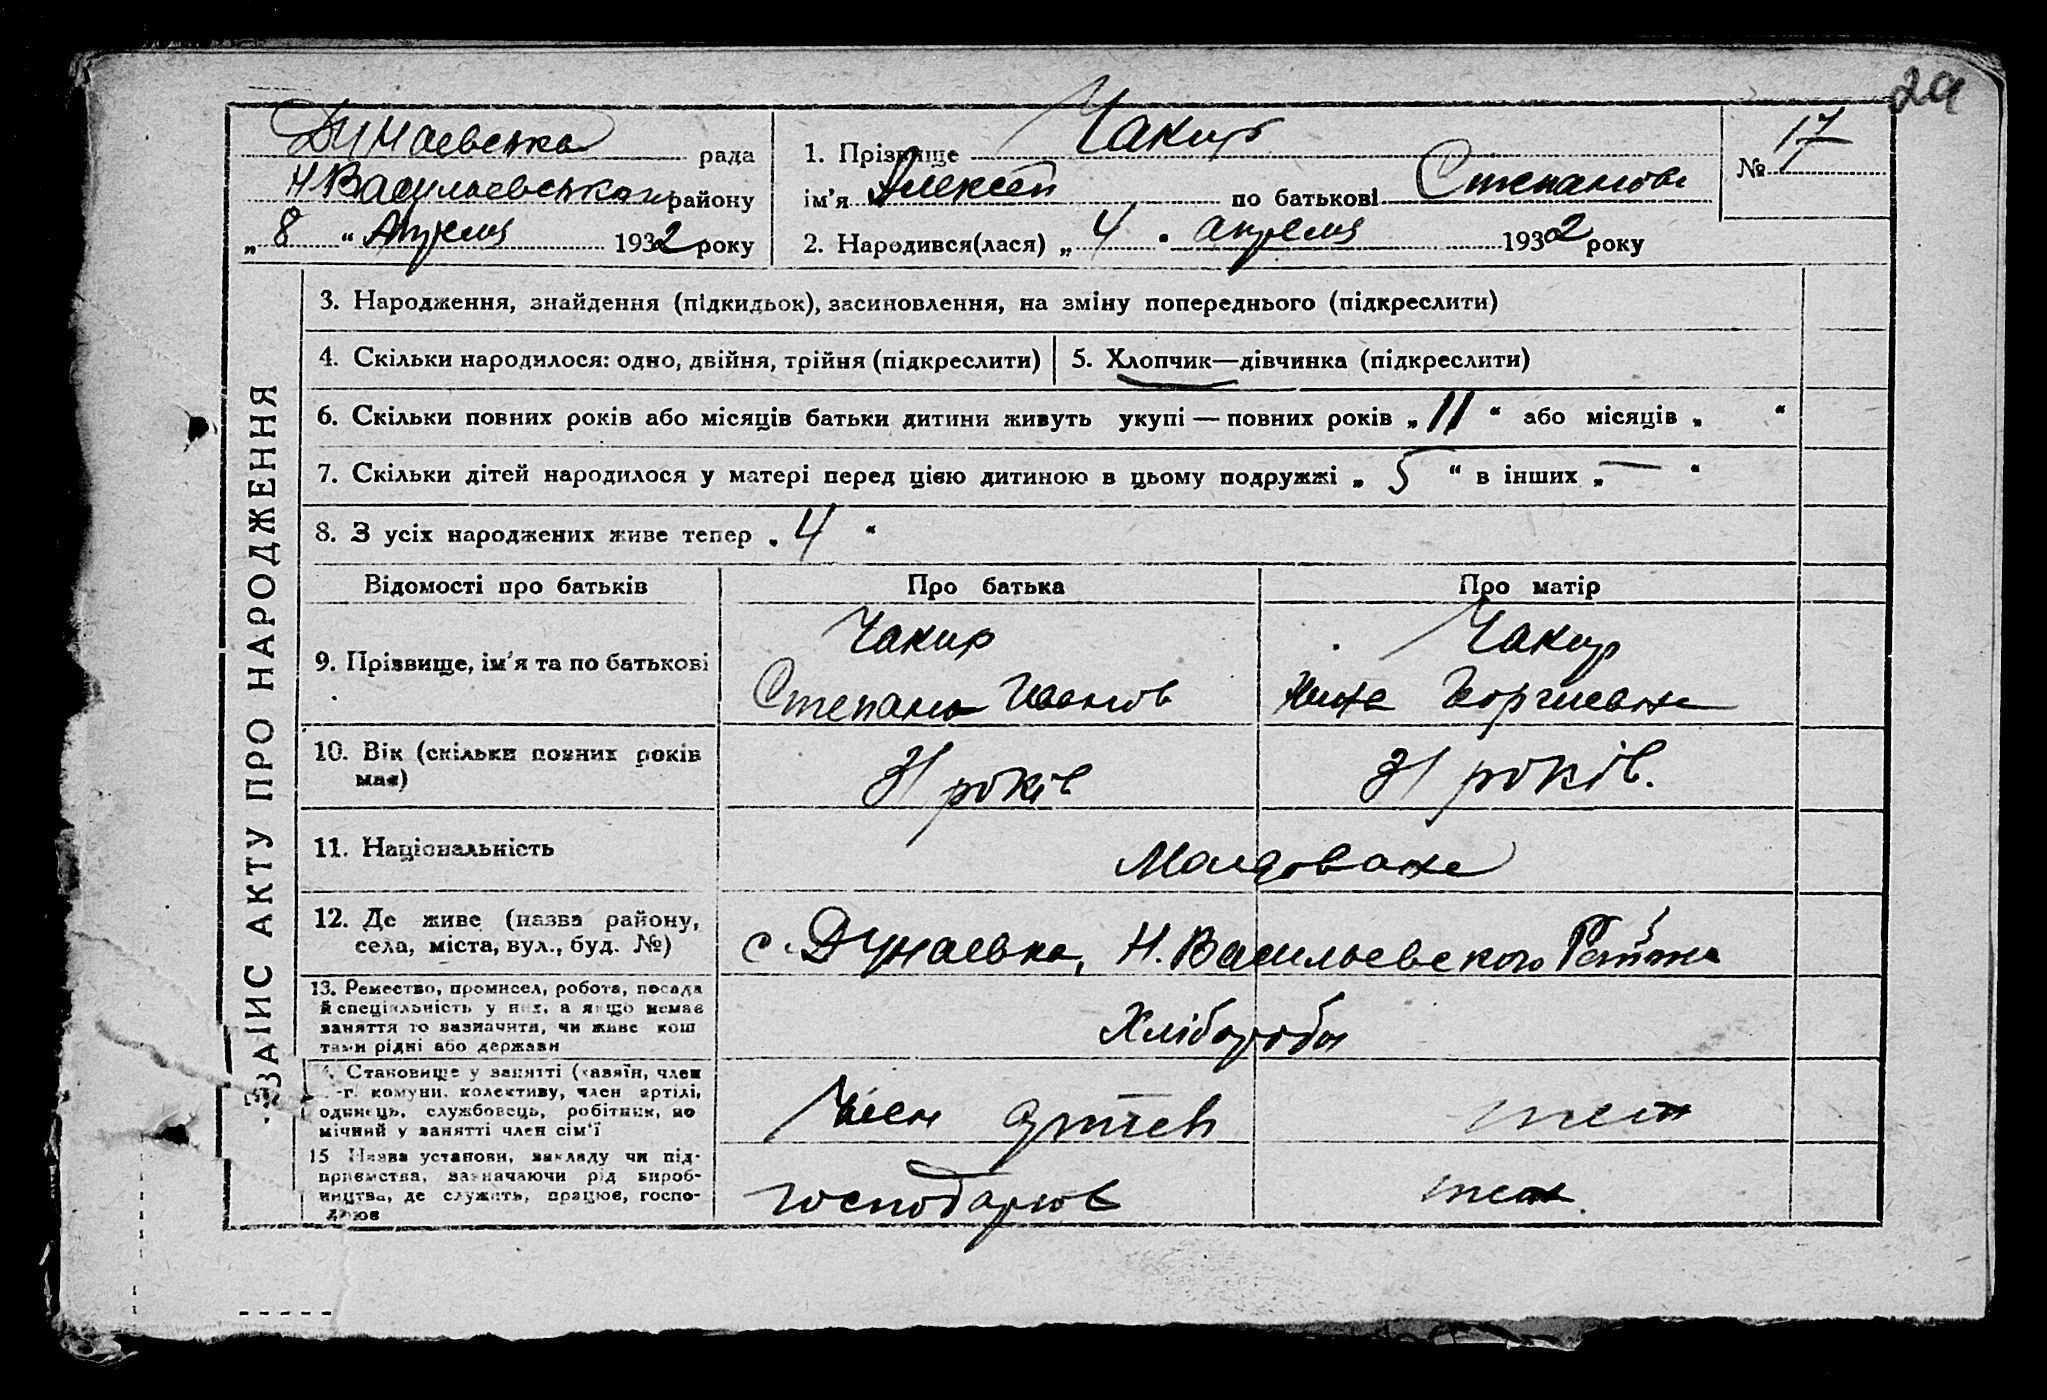 29
Дунаевська рада
Н Васильевського району
„ 8 “ Апреля 1932 року
1. Прізвище Чакир
ім’я Алексей по батькові Степанов
2. Народився(лася) „ 4 “ апреля 1932 року
№ 17
ЗАПИС АКТУ ПРО НАРОДЖЕННЯ
3. Народження, знайдення (підкидьок), засиновлення, на зміну попереднього (підкреслити)
4. Скільки народилося: одно, двійня, трійня (підкреслити)
5. Хлопчик—дівчинка (підкреслити)
6. Скільки повних років або місяців батьки дитини живуть укупі — повних років „ 11 “ або місяців „ “
7. Скільки дітей народилося у матері перед цією дитиною в цьому подружжі „ 5 “ в інших „ — “
8. З усіх народжених живе тепер „ 4 “
Відомості про батьків Про батька Про матір
9. Прізвище, ім’я та по батькові
Чакир
Степан Иванов
Чакир
Георгиевна
10. Вік (скільки повних років
має)
31 років
31 років.
11. Національність
Молдоване
12. Де живе (назва району,
села, міста, вул., буд. №)
с. Дунаевка, Н. Васильевского Района
13. Ремество, промисел, робота, посада
й спеціяльність у них, а якщо немає
заняття то зазначити, чи живе кош
тами рідні або держави
Хлібороби
Становище у занятті (хазяїн, член
комуни, колективу, член артілі,
одинець, службовець, робітник, по
мічний у занятті член сім’ї
Член артіли
теж
15 Назва установи, закладу чи під-
приємства, зазначаючи рід вироб-
ництва, де служить, працює, госпо-
дарює
господарюв
теж